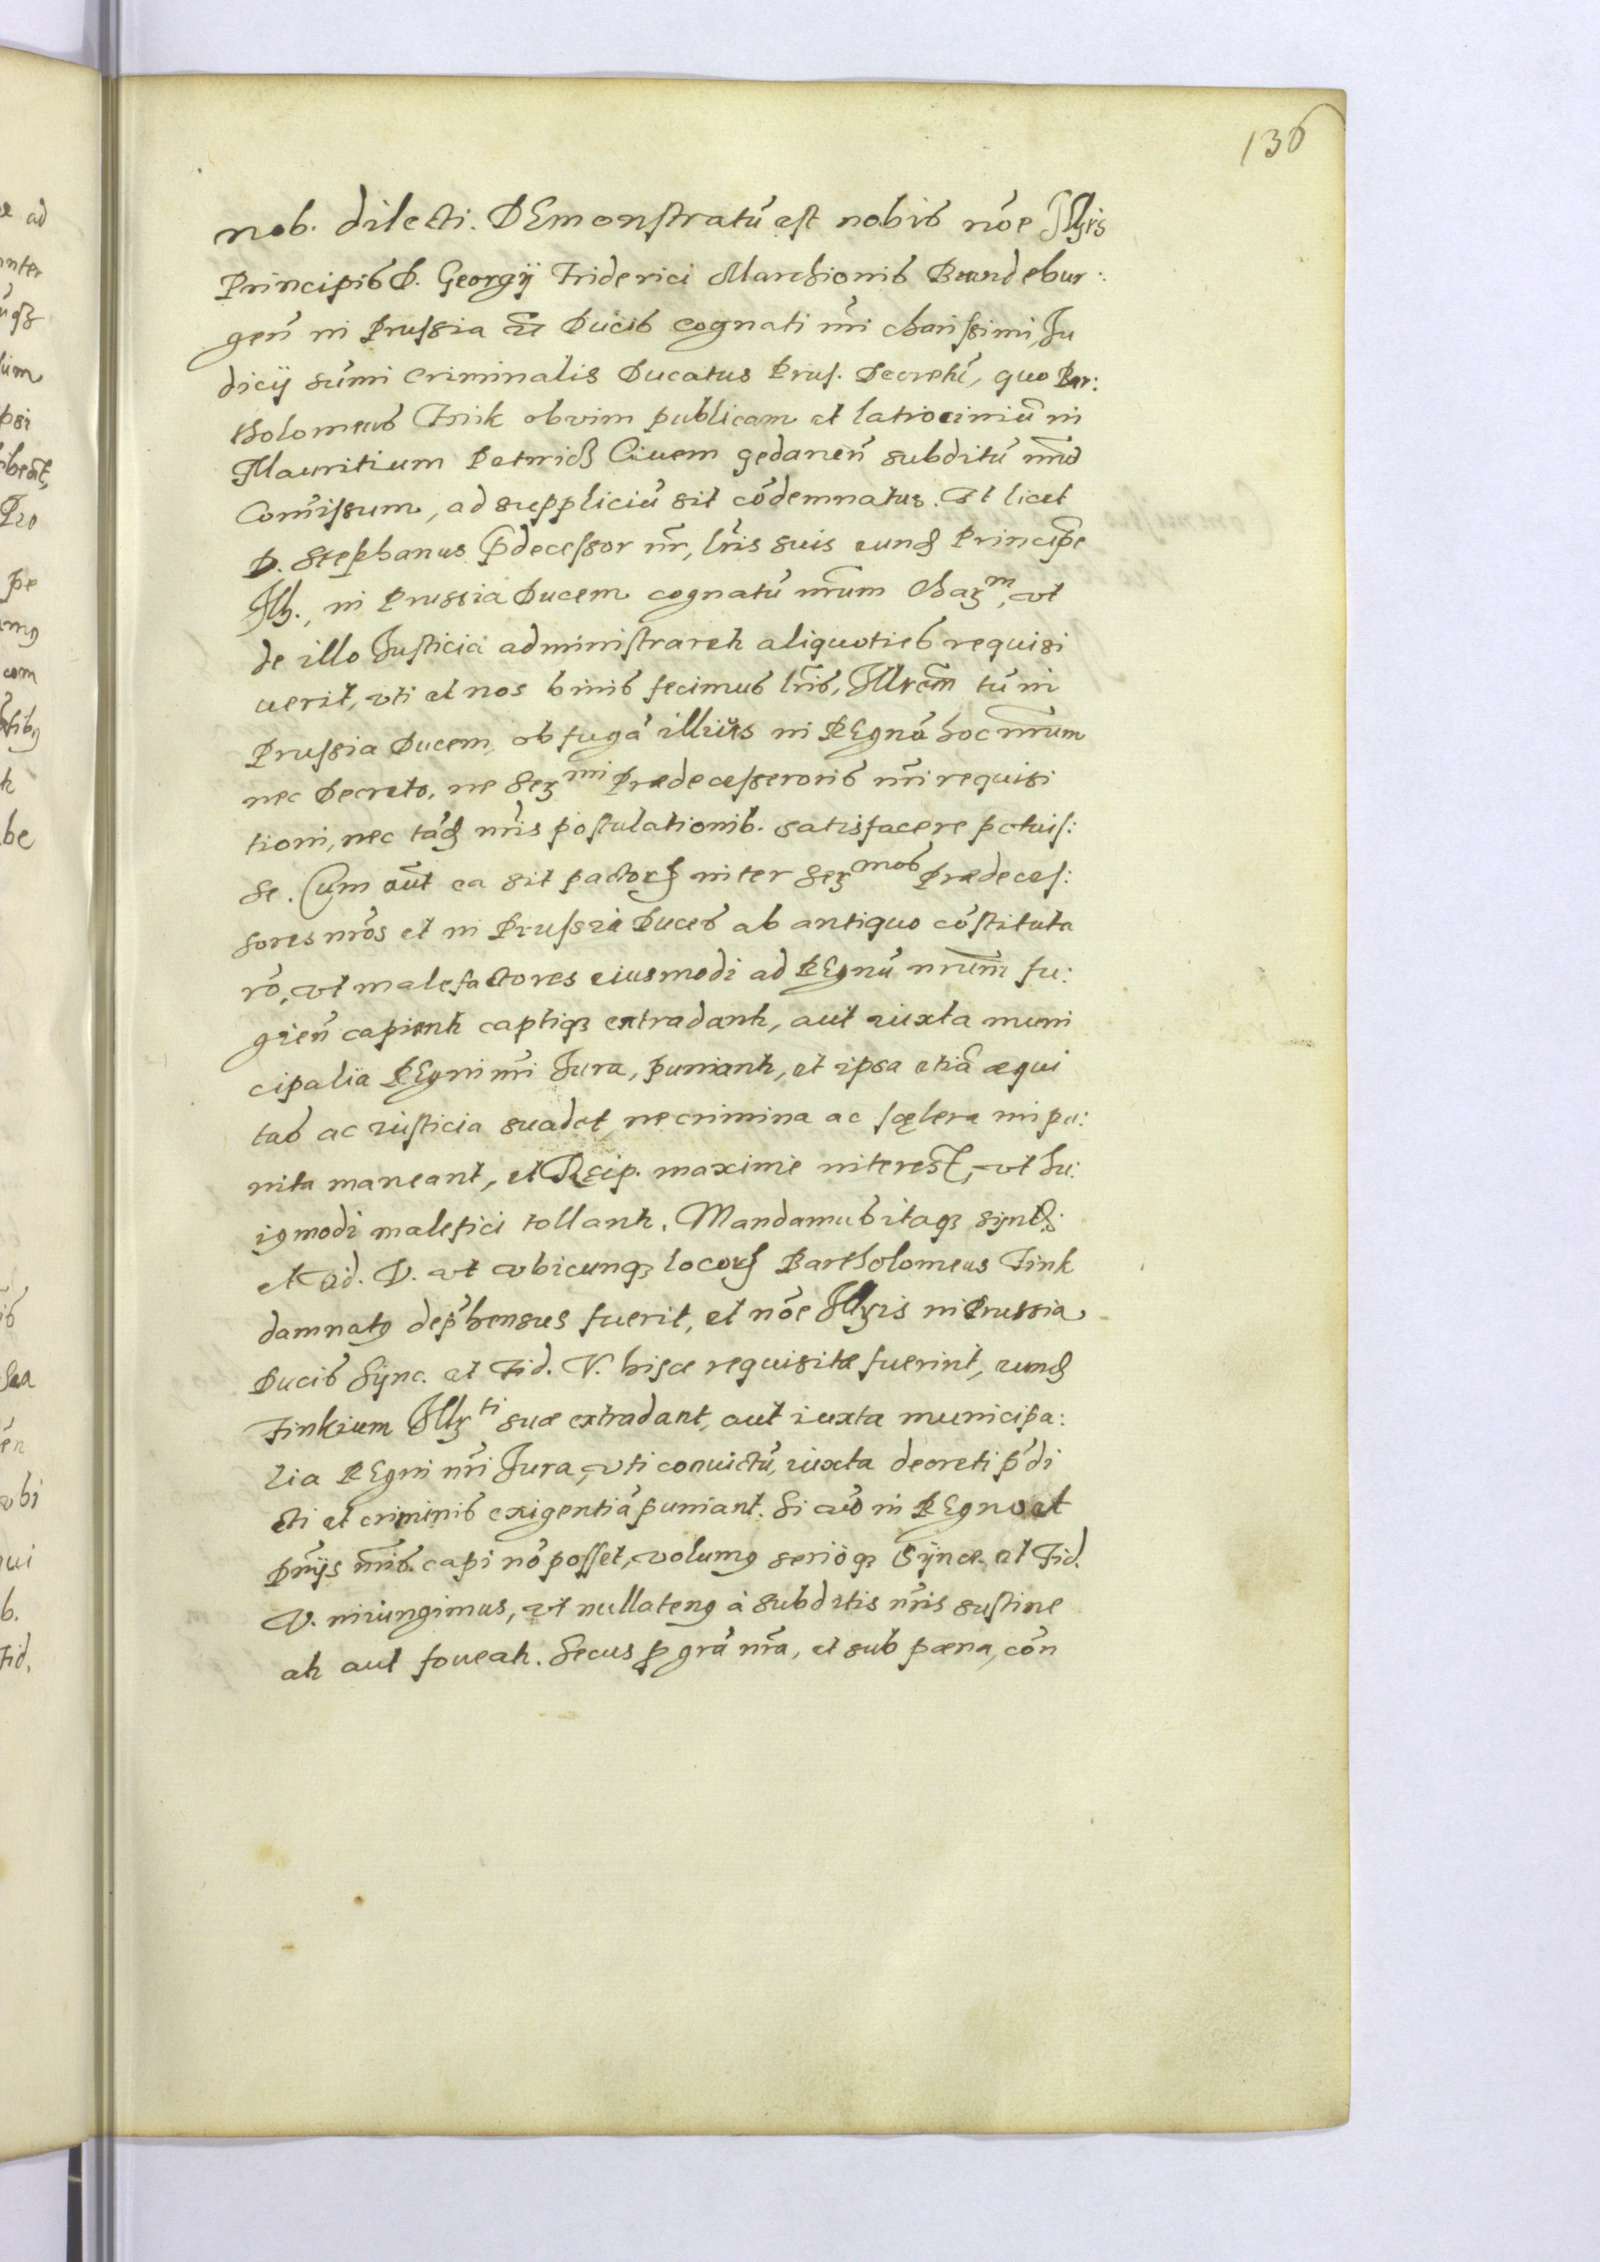 136
nob. dilecti. DEmonstratū est nobis nōe Illris
Principis D. Georgij Friderici Marchionis Brandebur:
gen̄ in Prussia &c Ducis cognati nr̄i charissimi, Ju
dicij sum̄i Criminalis Ducatus Prus. Decretū, quo Bar:
tholomeus Fink ob vim publicam et latrociniū in
Mauritium Petrich Ciuem gedanen̄ subditū nr̄um
Comissum, ad suppliciū sit cōdemnatus. Et licet
D. Stephanus p̄decessor nr̄, lr̄is suis eund Principē
Ill., in Prussia Ducem cognatū nr̄um Char̄m, vt
de illo Justicia administraretr aliquoties requisi
uerit, vti et nos binis fecimus lr̄is, Illrem̄ tū in
Prussia Ducem, ob fugā illius in REgnū hoc nr̄um
nec Decreto, ne Serᵐⁱ Prædecessoris nr̄i requisi
tioni, nec tād nr̄is postulationib. satisfacere potuis:
se. Cum aūt ea sit pactorȝ inter Serᵐᵒˢ Prædeces:
sores nr̄os et in Prussia Duces ab antiquo cōstituta
rō, vt malefactores eiusmodi ad REgnū nr̄um fu:
gien̄ capiantr captiqȝ extradantr, aut iuxta muni
cipalia REgni nr̄i Jura, puniantr, et ipsa etiā æqui
tas ac iusticia suadet, ne crimina ac scęlera impu:
nita maneant, et Reip. maxime interest, vt hu:
iꝯmodi malefici tollantr. Mandamus itaqȝ Synd:
et Fid. V. vt vbicunqȝ locorȝ Bartholomeus Fink
damnatꝯ dep̄hensus fuerit, et nōe Illris in Prussia
Ducis Sync. et Fid. V. hisce requisitæ fuerint, eund
Finkium Illrᵗⁱ suæ extradant, aut iuxta municipa:
lia REgni nr̄i Jura, vti conuictū, iuxta decreti p̄di
cti et criminis exigentiā puniant. Si vō in REgno et
Dn̄ijs nr̄is capi nō posset, volumꝯ serioqȝ Syncæ. et Fid.
V. iniungimus, vt nullatenꝯ à subditis nr̄is sustine
atr aut foueatr. Secus ꝓ grā nr̄a, et sub pæna, cōn